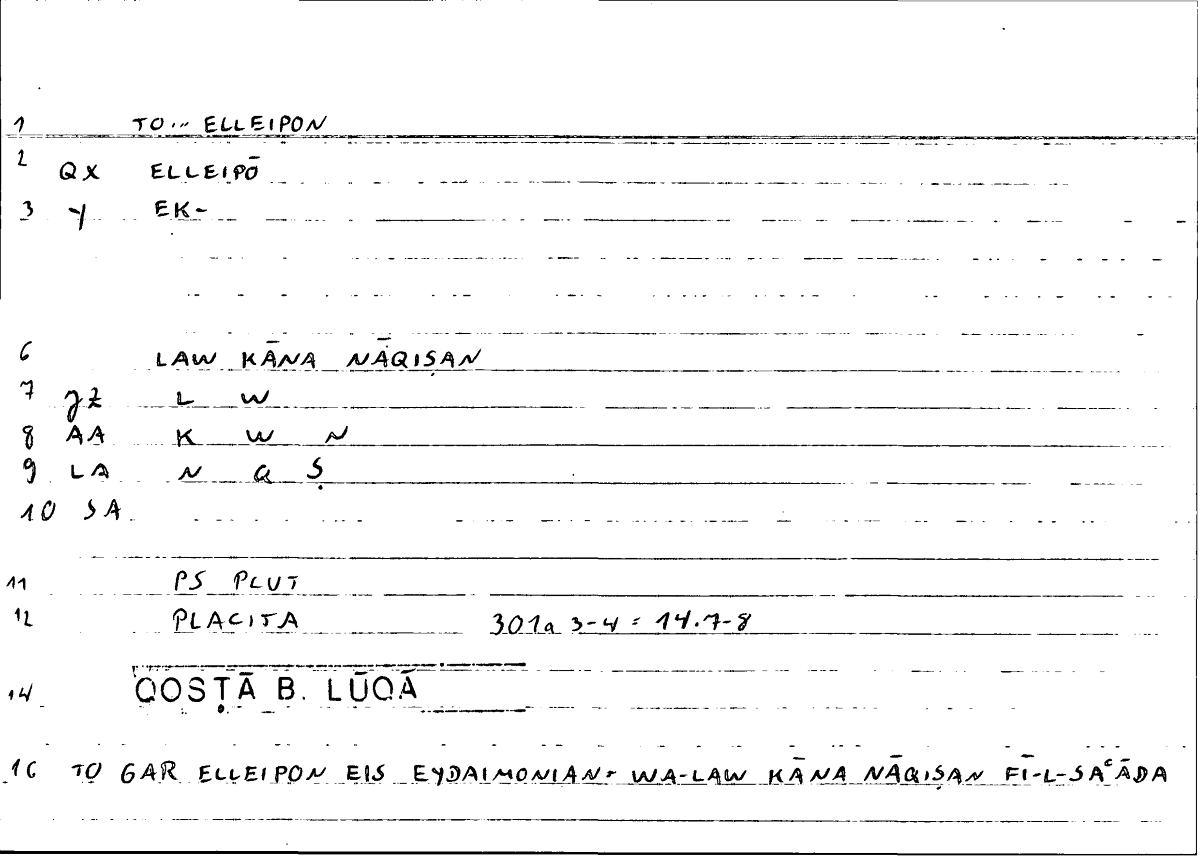 1 TO... ELLEIPON
2 QX ELLEIPŌ
3 Y EK-
6 LAW KĀNA NĀQIṢAN
7 ȷZ L W
8 AA K W N
9 LA N Q Ṣ
10 SA
11 PS PLUT
12 PLACITA 301a 3-4 = 14.7-8
14 QOSṬĀ B. LŪQĀ
16 TO GAR ELLEIPON EIS EYDAIMONIAN = WA-LAW KĀNA NĀQIṢAN FĪ-L-SAᶜĀDA